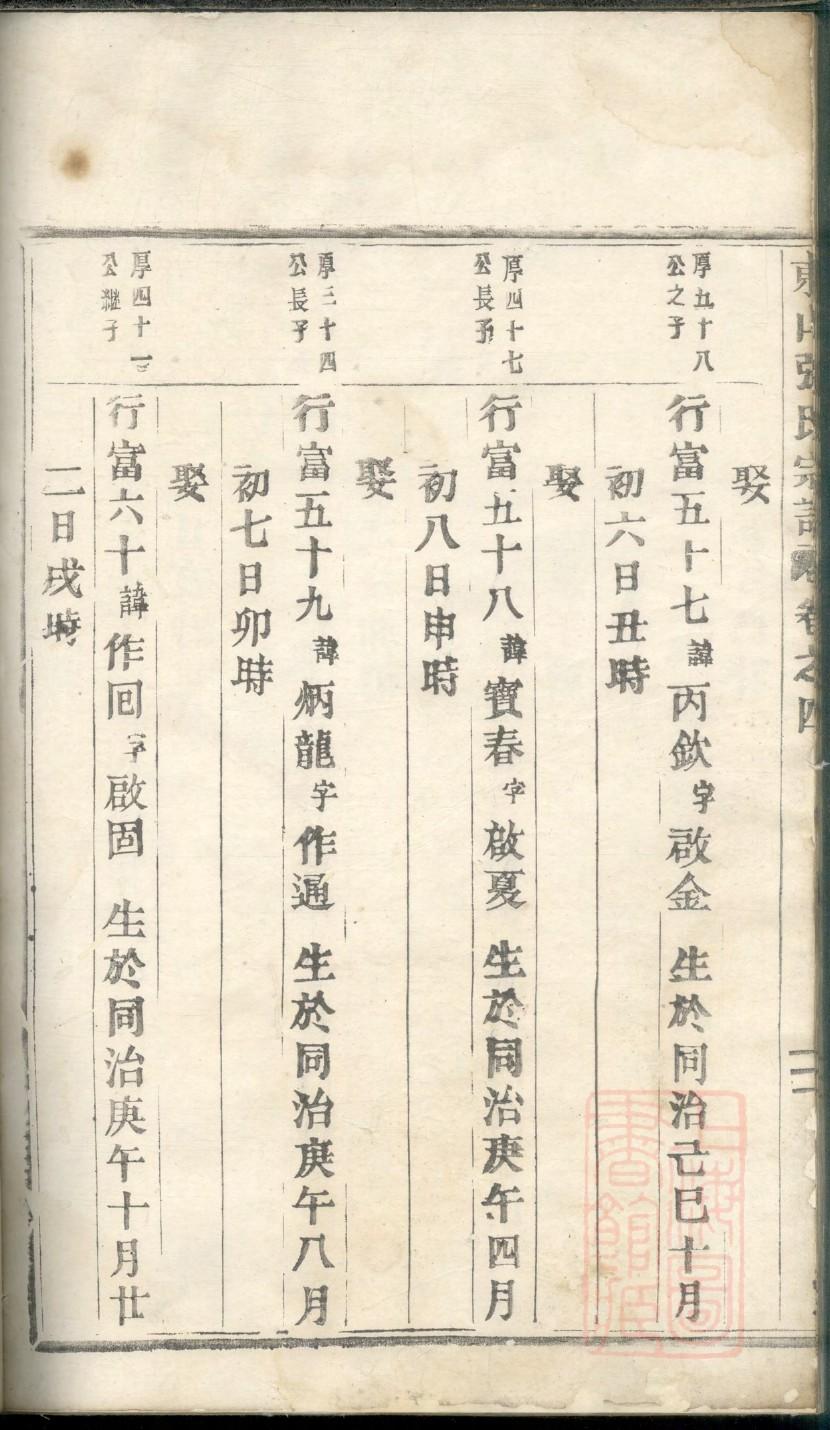 東山張氏宗譜 卷之四
娶
厚五十八
公之子
行富五十七 諱 丙欽 字 啟金 生於同治己巳十月
初六日丑時
娶
厚四十七
公長子
行富五十八 諱 寶春 字 啟夏 生於同治庚午四月
初八日申時
娶
厚三十四
公長子
行富五十九 諱 炳龍 字 作通 生於同治庚午八月
初七日卯時
娶
厚四十一
公繼子
行富六十 諱 作回 字 啟固 生於同治庚午十月廿
二日戌時
上海圖
書館藏